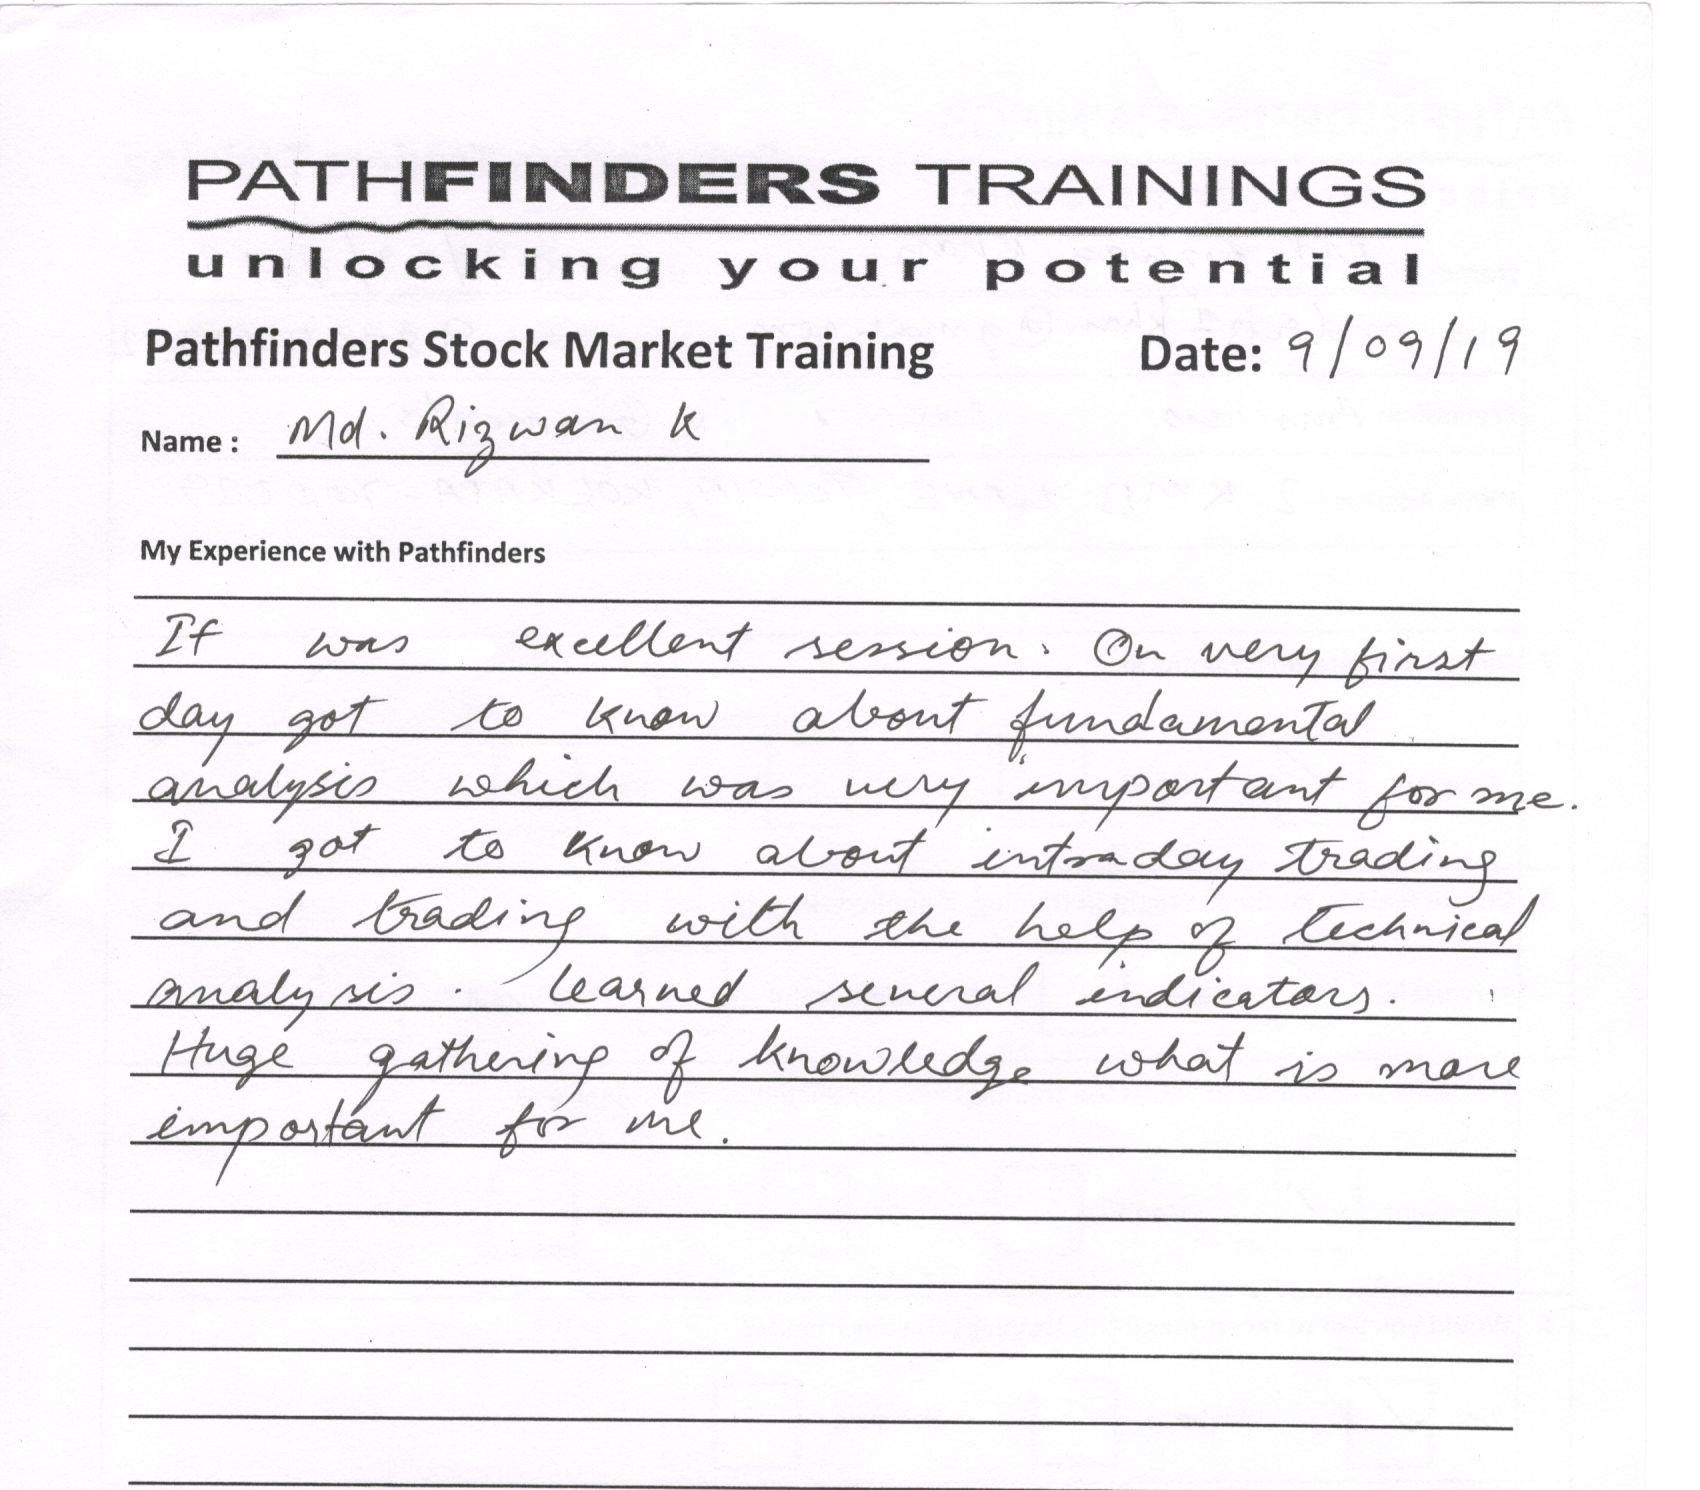 PATHFINDERS TRAININGS
unlocking your potential
Pathfinders Stock Market Training Date: 9/09/19
Name : Md. Rizwan K
My Experience with Pathfinders
It was excellent session. On very first
day got to know about fundamental
analysis which was very important for me.
I got to know about intraday trading
and trading with the help of technical
analysis. learned several indicators.
Huge gathering of knowledge what is more
important for me.